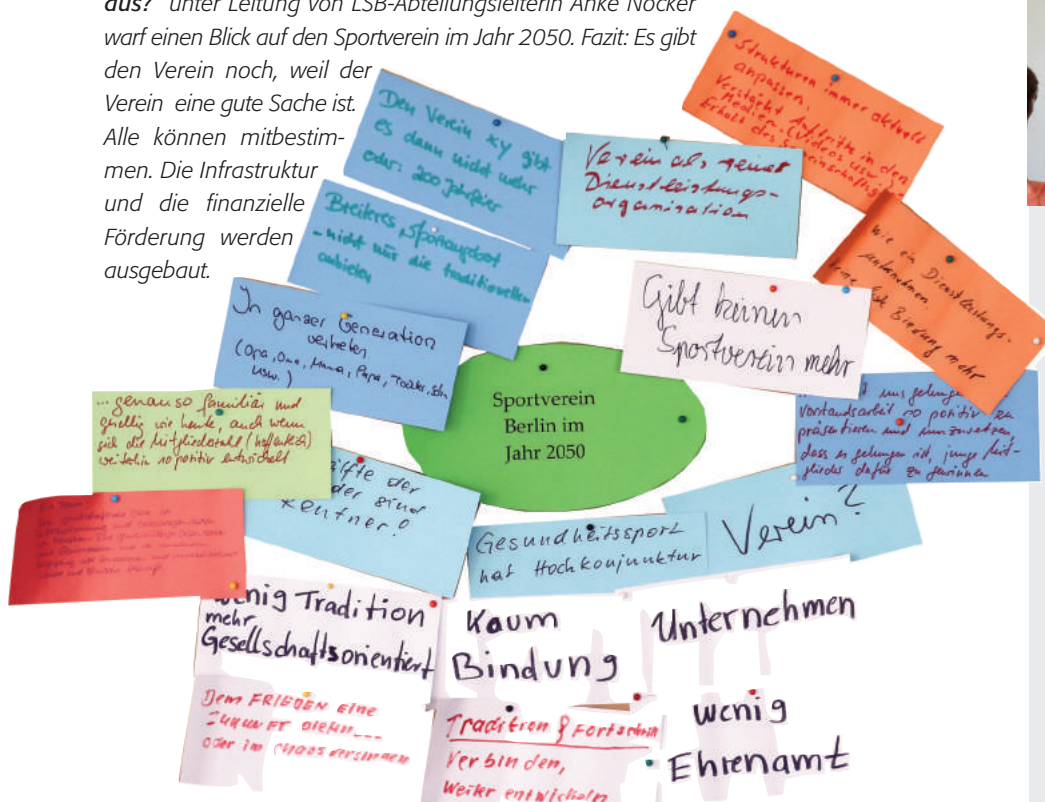 aus?" unter Leitung von LSB-Abteilungsleiterin Anke Nöcker
warf einen Blick auf den Sportverein im Jahr 2050. Fazit: Es gibt
den Verein noch, weil der
Verein eine gute Sache ist.
Alle können mitbestim-
men. Die Infrastruktur
und die finanzielle
Förderung werden
ausgebaut.
Den Verein xy gibt
es dann nicht mehr
oder: 200 Jahrfeier
Verein als reine
Dienstleistungs-
organisation
Strukturen immer aktuell
anpassen.
Verstärkt Auftritte in den
Medien. (Videos usw.)
Erhalt des
Breiteres Sportangebot
- nicht nur die traditionellen
anbieten
Gibt keinen
Sportverein mehr
Wie ein Dienstleistungs-
unternehmen.
keine Bindung mehr
In ganzer Generation
vertreten
(Opa, Oma, Mama, Papa, Tochter, Sohn
usw.)
Sportverein
Berlin im
Jahr 2050
... genauso familiär und
gesellig wie heute, auch wenn
sich die Mitgliederzahl (hoffentlich)
weiterhin so positiv entwickelt
uns gelungen
Vorstandsarbeit so positiv zu
präsentieren und umzusetzen
dass es gelungen ist, junge Mit-
glieder dafür zu gewinnen
älfte der
der sind
Rentner!
Gesundheitssport
hat Hochkonjunktur
Verein?
wenig Tradition
mehr
Gesellschaftsorientiert
Kaum
Bindung
Unternehmen
Dem FRIEDEN EINE
ZUKUNFT
oder im CHAOS versinken
Tradition & Fortschritt
Verbinden,
Weiter entwickeln
wenig
Ehrenamt